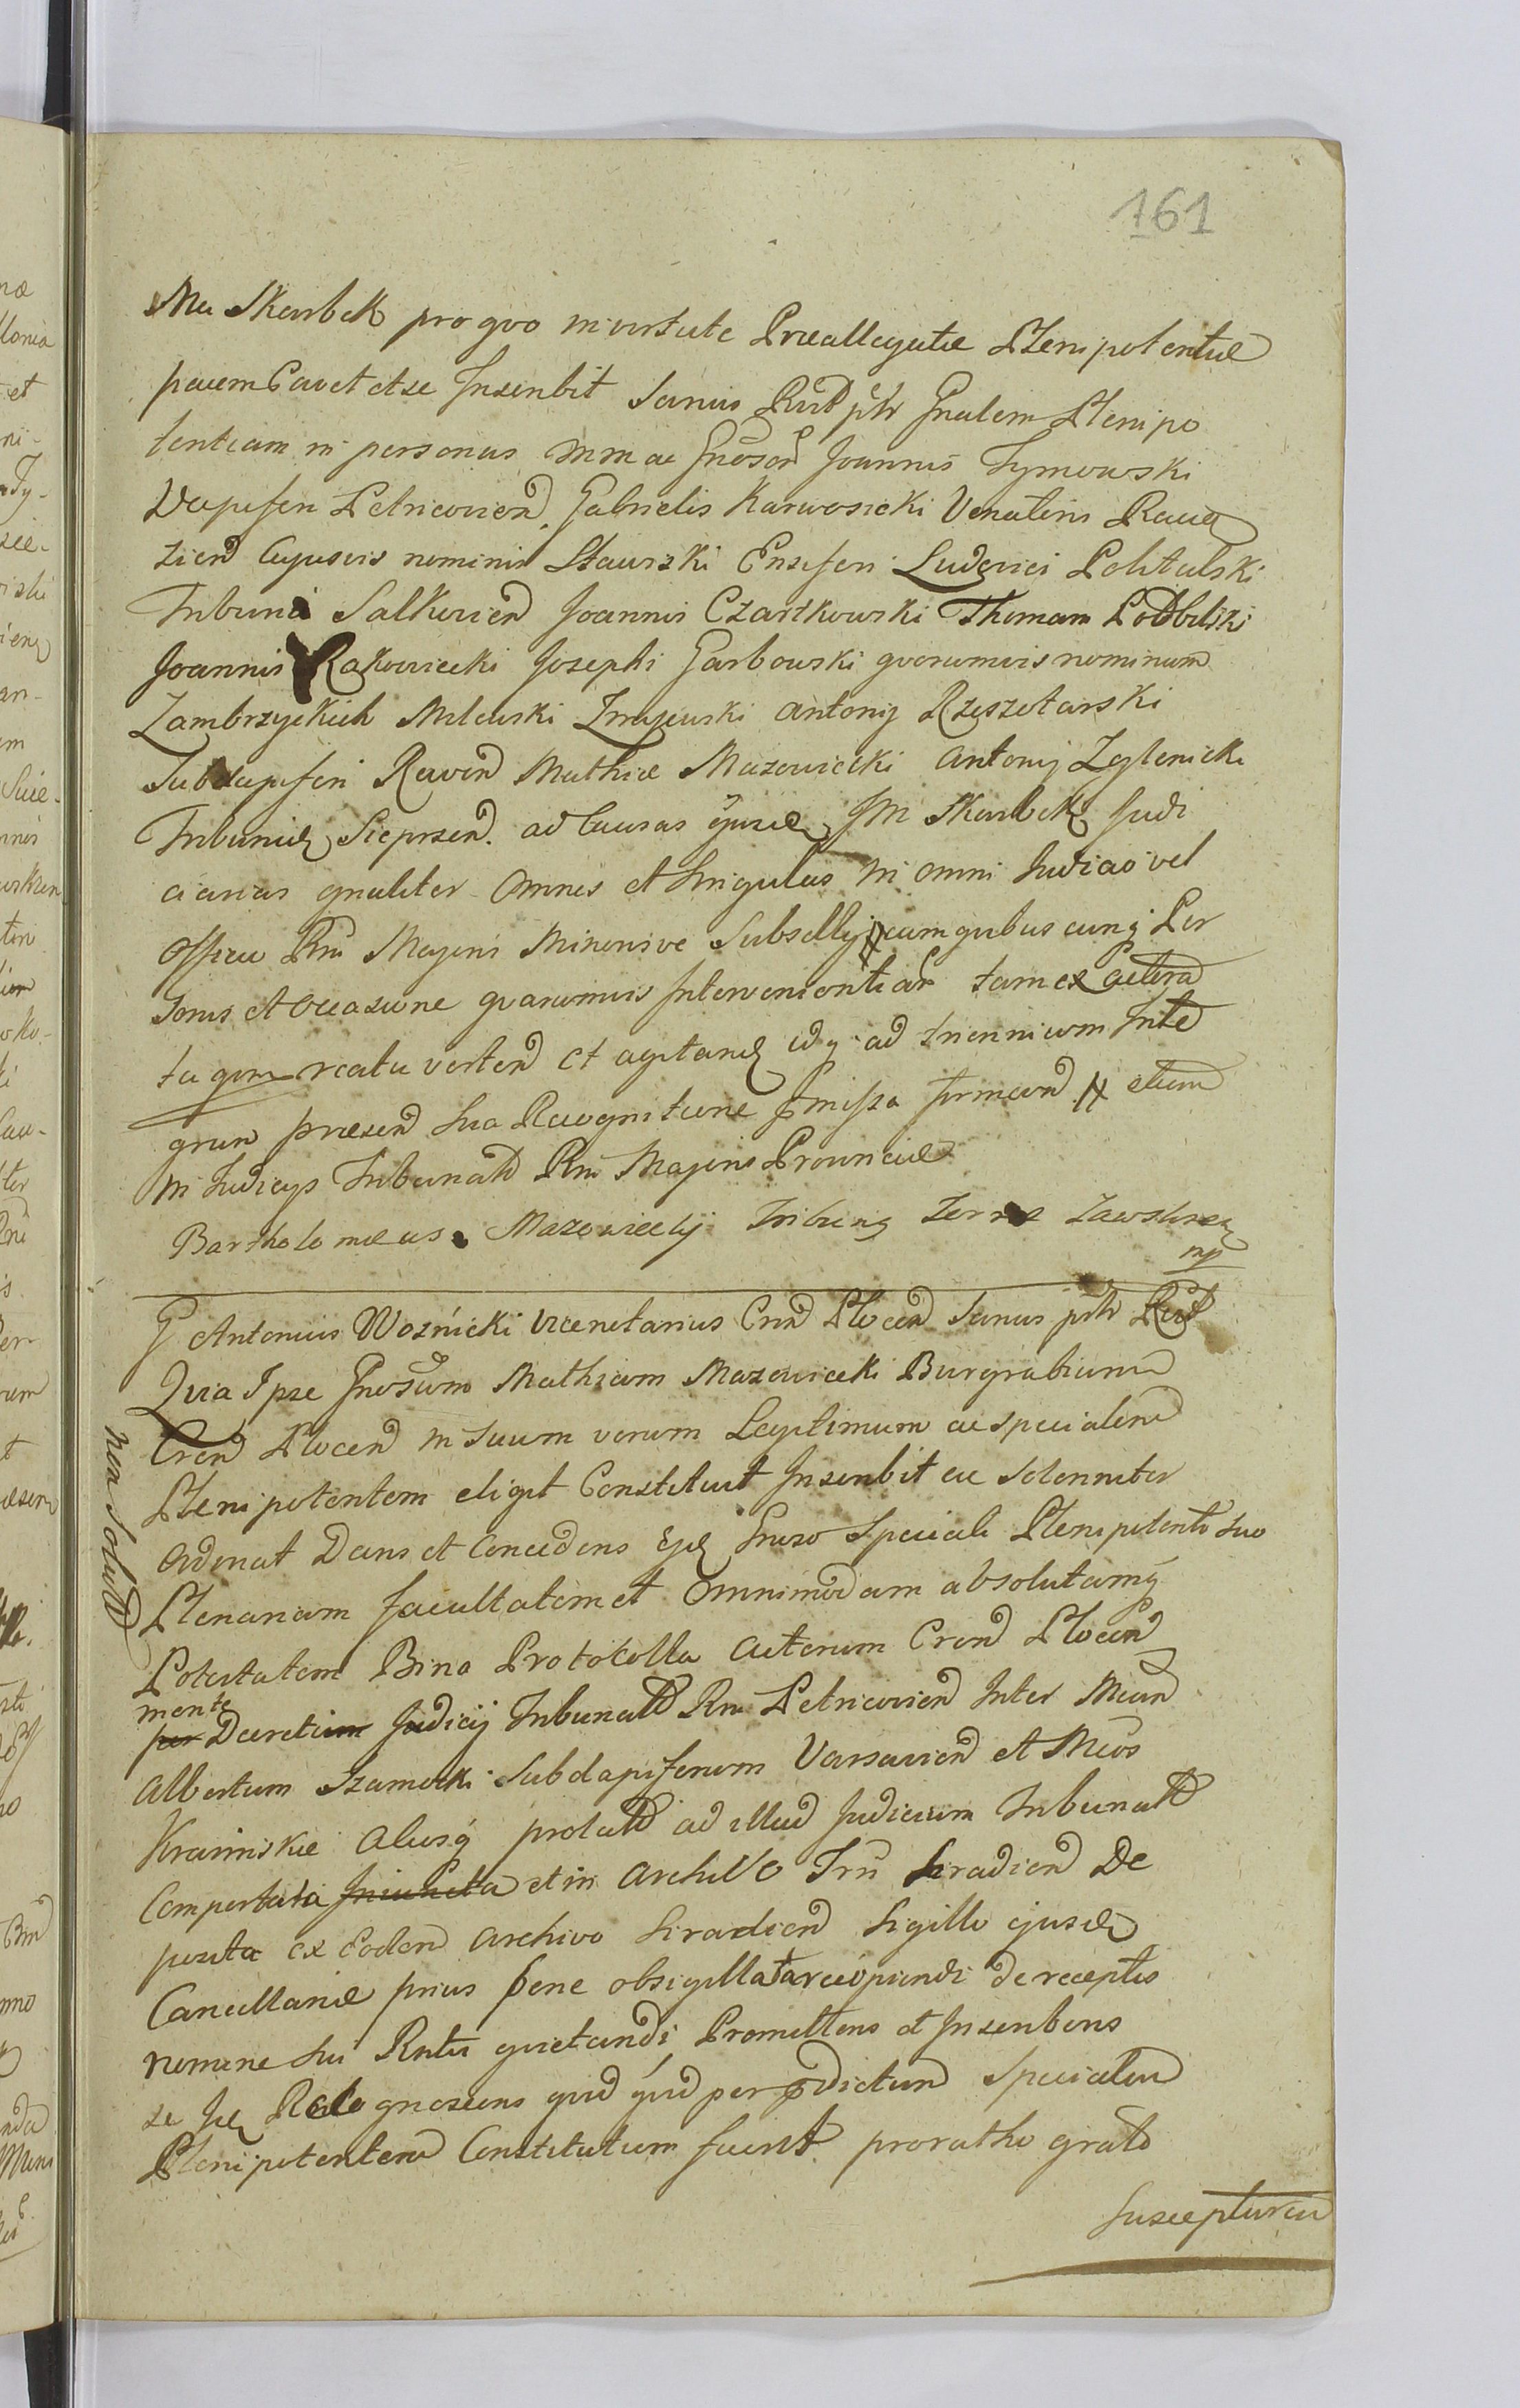 161
Ma Skarbek pro quo in virtute Præallegatæ Plenipotentiæ
pacem Cavet et se Inscribit Sanus Rcdt pttr Gnalem Plenipo
tentiam in personas Mm ac Gnosor Joannis Tymowski
Dapiferi Petricovien. Gabrielis Karwosicki Venatoris Racią
zien Cujusvis nominis Stawiski Ensiferi Ludovici Politalski
Tribuni Joannis Czartkowski Thomam
Joannis Rakowiecki Josephi Garbowski quorumvis nominum
Zambrzyckich Milewski Zmijewski Antonij Rzeszotarski
Subdapiferi Raven Mathiæ Mazowiecki Antonij Zglenicki
Tribuni Sieprsen. ad Causas ejusd JM Skarbek Judi
ciarias gnaliter Omnes et Singulas in omni Judicio vel
Officio Rni Majoris Minorisve Subsellij cum quibuscunq Per
sonis et Occasione quarumvis Interventientiar tam ex actora
tu qvm reatu verten et agitand id q ad triennium Inte
grum præsen sua Recognitione pmissa firmand etiam
in Judicys Tribunalt Rni Majoris Provinciæ
Bartholomæus Mazowiecky Tribung Terræ Zawskrzen
mp
G Antonius Woźnicki Vicenotarius Crn Plocen Sanus pttr Rcdt
Quia Ipse Gnosum Mathiam Mazowiecki Burgrabium
Cren Plocen in Suum verum Legitimum ac specialem
Plenipotentem eligit Constituit Inscribit ac Solenniter
Ordinat Dans et Concedens Ejd Gnoso Speciali Plenipotenti suo
Plenariam facultatem et Omnimodam absolutamq
Potestatem Bina Protokolla Actorum Cren Plocen
mente
per Decretium Judicij Tribunalt Rni Petricovien Inter Mcum
Albertum Szamocki Subdapiferum Varsavien et Mcos
Kraiinskie Aliosq prolat ad illud Judicium Tribunalt
Comportata Iniuncta et in Archivo Trii Siradien De
posita ex Eoden Archivo Siradien Sigillo ejusd
Cancellariæ prius bene obsigillata recipiendi de receptis
nomine sui Rntis quietandi, Promittens et Inscribens
se Recognoscens quid quid per pdictum Specialem
Plenipotentem Constitutum fuerit pro ratho grato
Suscepturum
non Solut